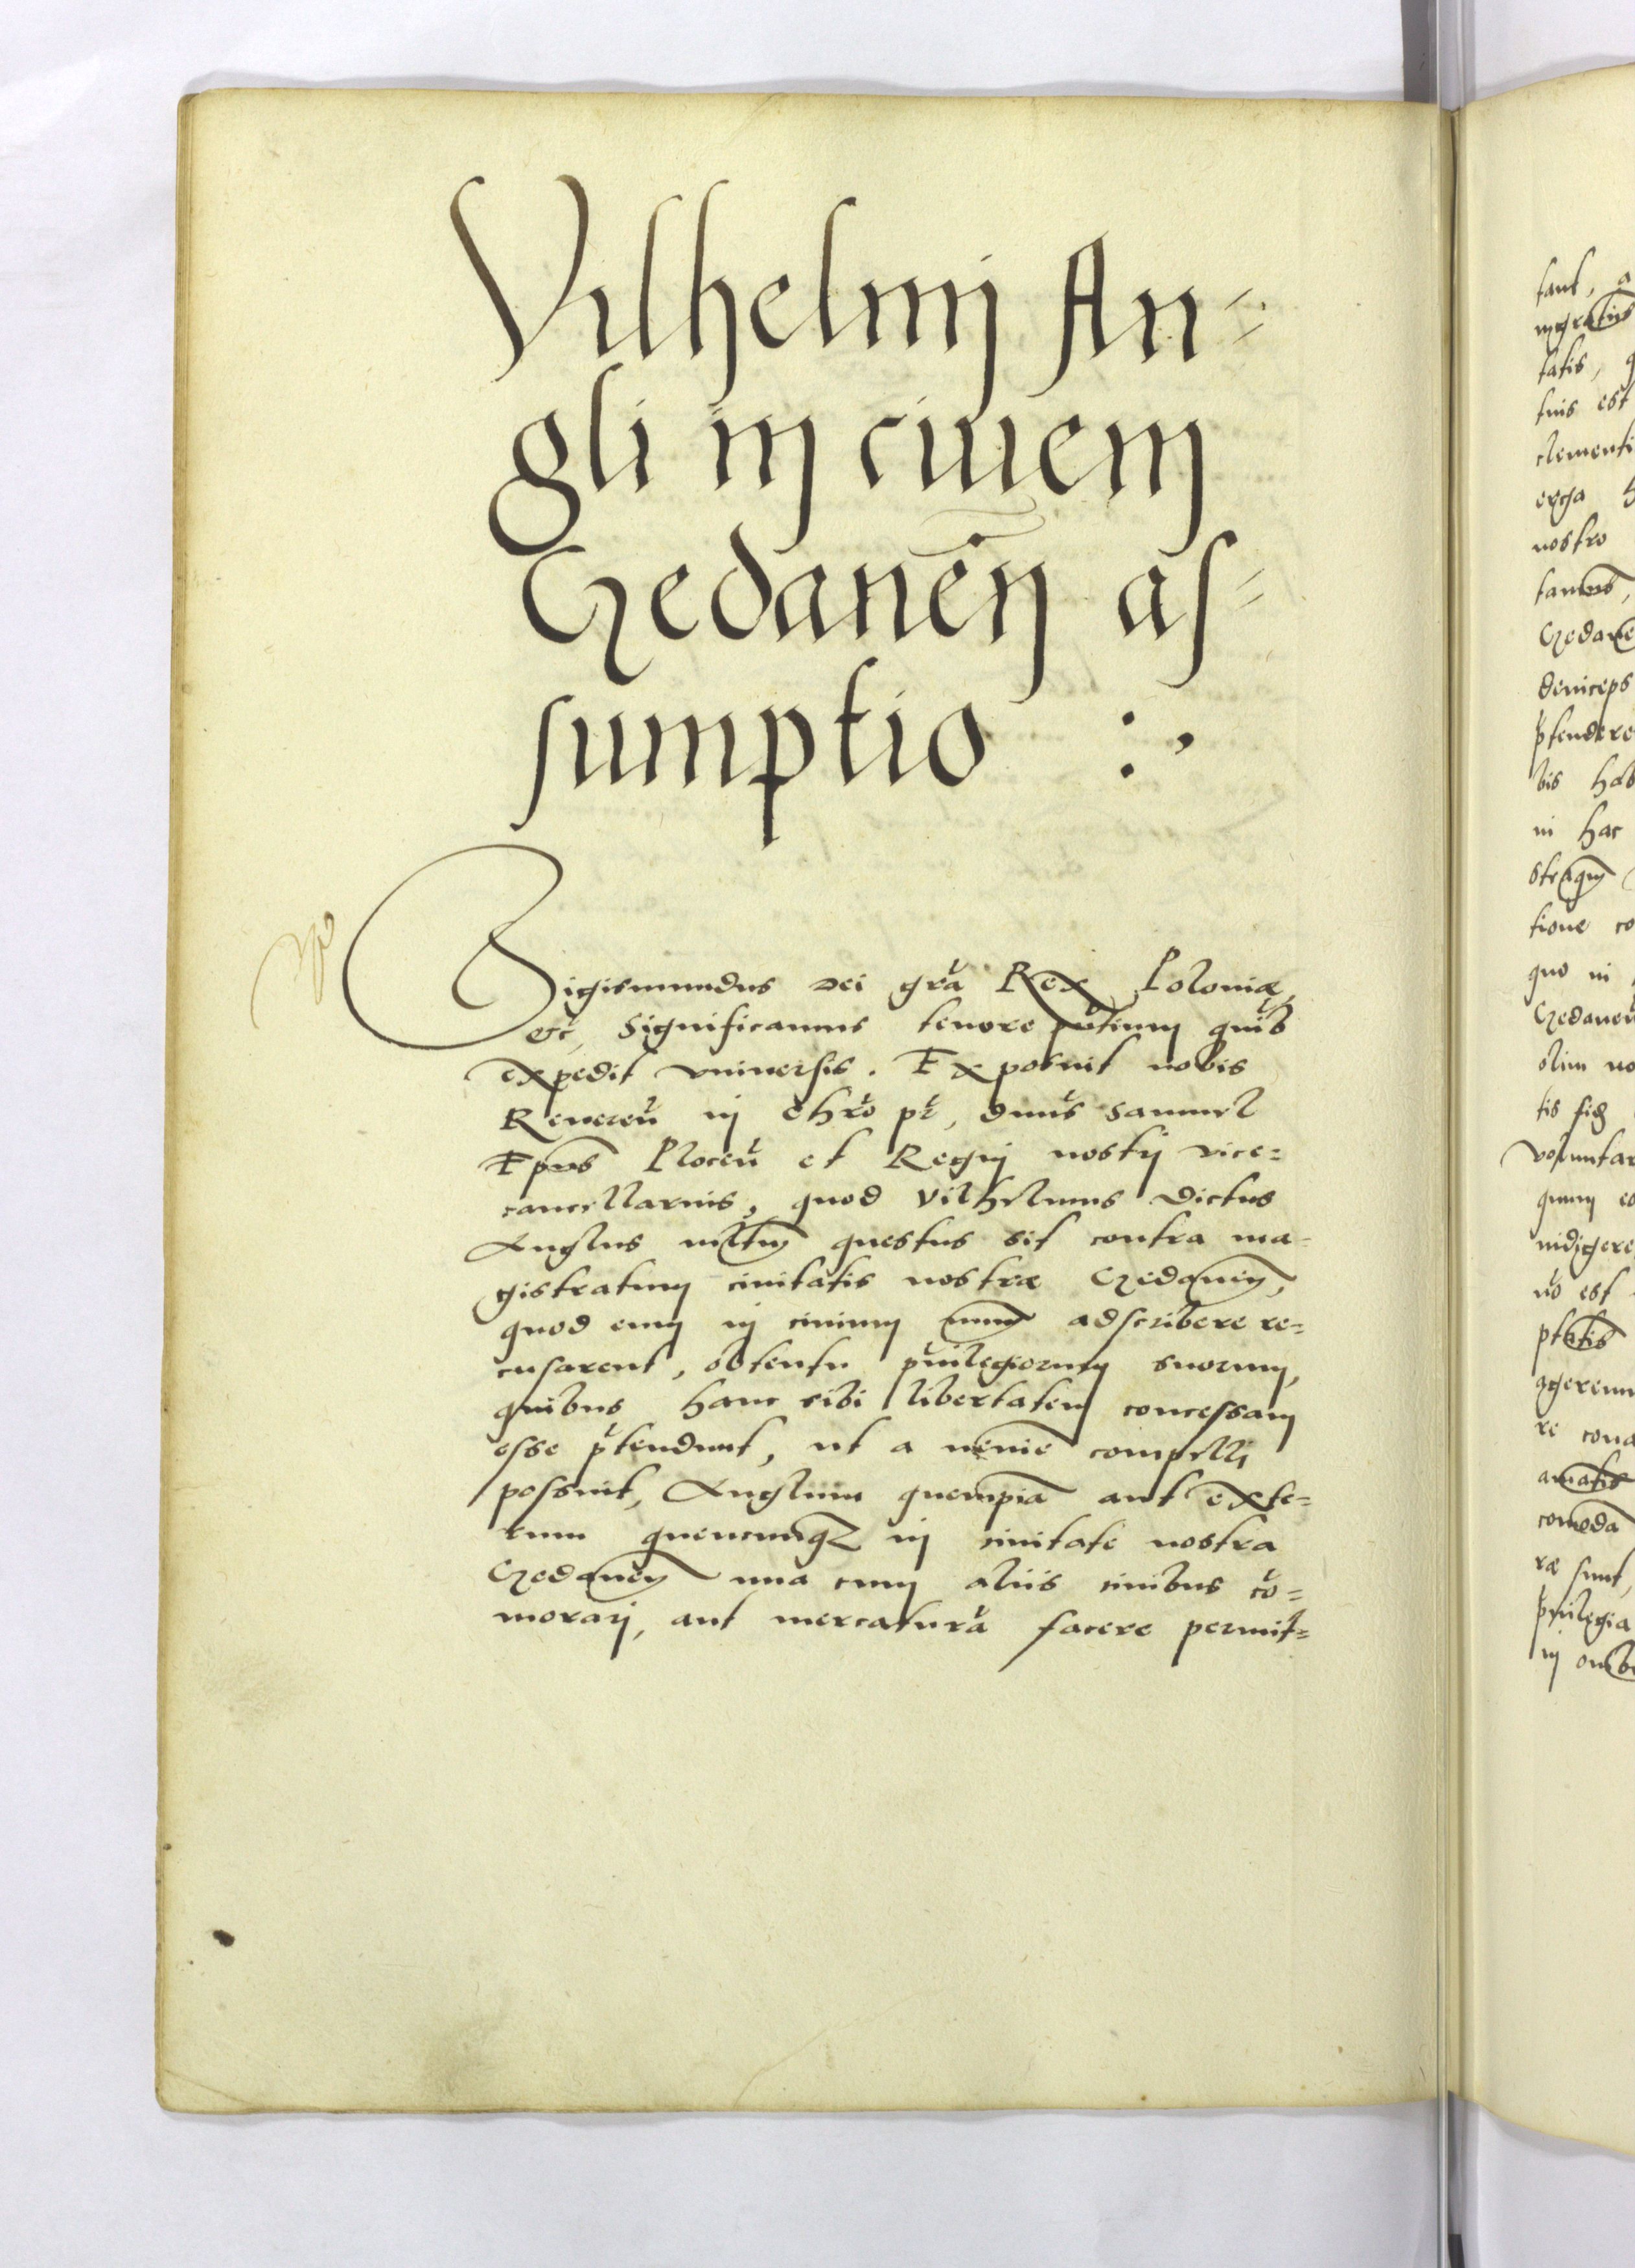 Vilhelmij An=
gli in ciuem
Gedanen̄ as=
sumptio :,
Sigismundus Dei gr̃a Rex Poloniæ
etc̃, Significamus tenore pñtium quib̃
expedit vniuersis. Exposuit nobis
Reuereñ in Chr̃o pr̃, dnũs Samuel
Ep̃us Ploceñ et Regnij nostrj vice=
cancellarius, quod Vilhelmus dictus
Anglus mltm̃ questus sit contra ma=
gistratum ciuitatis nostræ Gedanen̄,
quod eum in ciuium adscribere re=
cusarent, obtentu pruilegiorum suorum,
quibus hanc sibi libertatem concessam
esse p̃tendunt, ut a nemine compelli
possint, Anglum quempiã aut exte=
rum quencumqꝫ in ciuitate nostra
Gedanen̄ una cum aliis ciuibus cõ=
morarj, aut mercaturã facere permit=
tant, a
tatis, q
tuis est
clementi
erga h
nostro
Gedane
deinceps
p̃tendere
bis hab
in hac
tione co
quo in
Gedaneñ
olim no
voluntar
quum eo
indigere
ṽo est
re cona
comoda
ræ sunt,
p̃uilegia